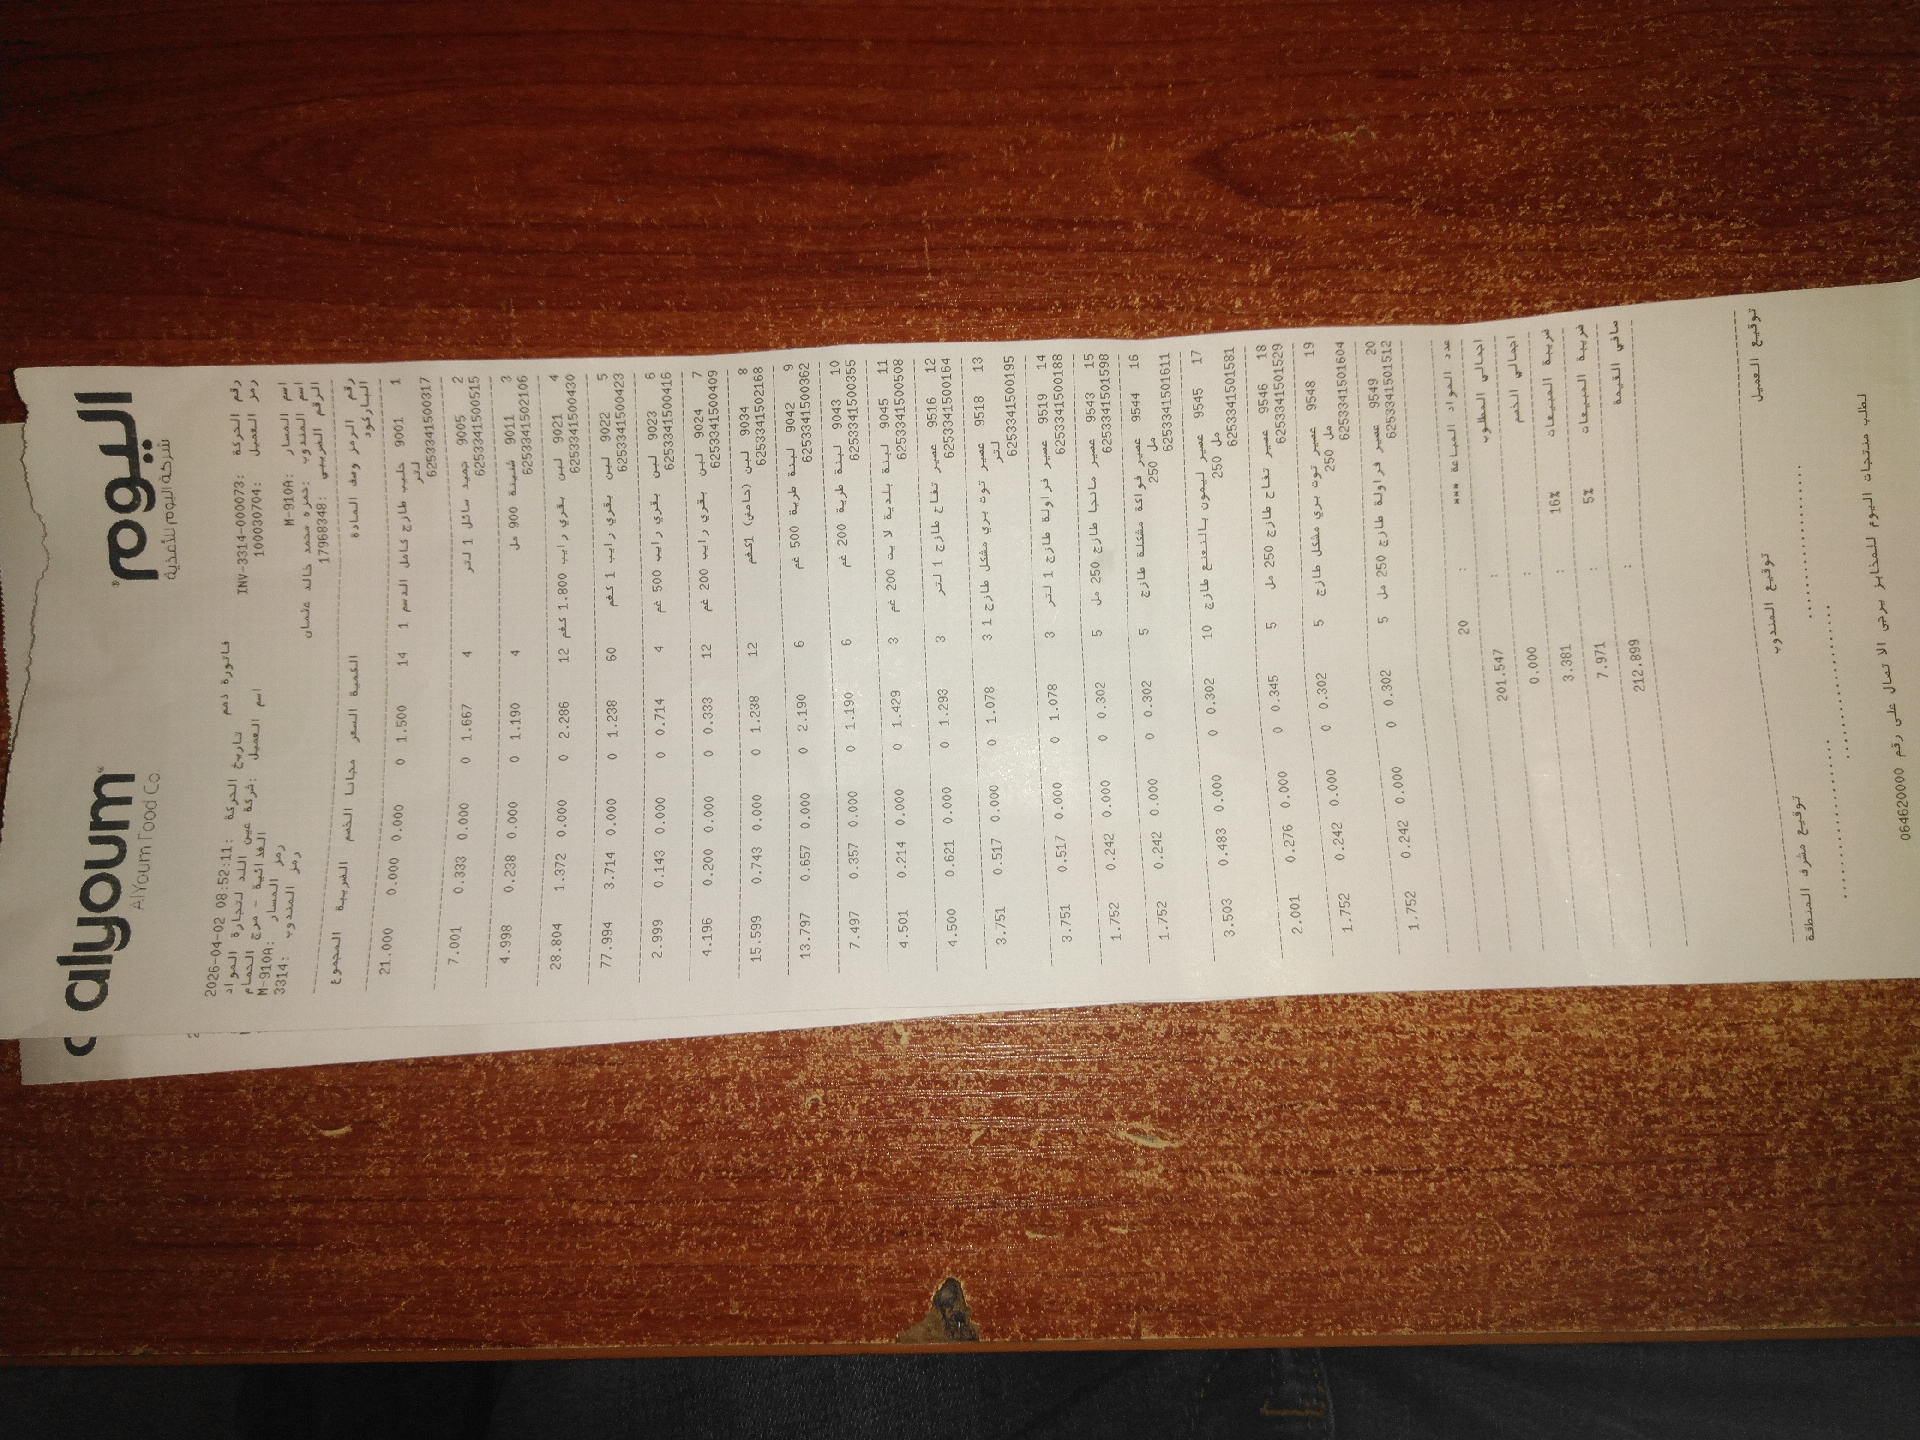 alyoum
AlYoum Food Co.
اليوم
شركة اليوم للأغذية
فاتورة ذمم
رقم الحركة :INV-3314-000073 تاريخ الحركة :2026-04-02 08:52:11
رمز العميل :100030704 اسم العميل :شركة عين اللد لتجارة المواد
الغذائية - مرج الحمام
اسم المسار :M-910A رمز المسار :M-910A
اسم المندوب :حمزه محمد خالد عثمان رمز المندوب :3314
الرقم الضريبي :17968348
رقم الرمز وصف المادة الكمية السعر مجانا الخصم الضريبة المجموع
الباركود
1 9001 حليب طازج كامل الدسم 1 14 1.500 0 0.000 0.000 21.000
لتر
6253341500317
2 9005 جميد سائل 1 لتر 4 1.667 0 0.000 0.333 7.001
6253341500515
3 9011 شنينة 900 مل 4 1.190 0 0.000 0.238 4.998
6253341502106
4 9021 لبن بقري رايب 1.800 كغم 12 2.286 0 0.000 1.372 28.804
6253341500430
5 9022 لبن بقري رايب 1 كغم 60 1.238 0 0.000 3.714 77.994
6253341500423
6 9023 لبن بقري رايب 500 غم 4 0.714 0 0.000 0.143 2.999
6253341500416
7 9024 لبن بقري رايب 200 غم 12 0.333 0 0.000 0.200 4.196
6253341500409
8 9034 لبن (حامض) 1كغم 12 1.238 0 0.000 0.743 15.599
6253341502168
9 9042 لبنة طرية 500 غم 6 2.190 0 0.000 0.657 13.797
6253341500362
10 9043 لبنة طرية 200 غم 6 1.190 0 0.000 0.357 7.497
6253341500355
11 9045 لبنة بلدية لايت 200 غم 3 1.429 0 0.000 0.214 4.501
6253341500508
12 9516 عصير تفاح طازج 1 لتر 3 1.293 0 0.000 0.621 4.500
6253341500164
13 9518 عصير توت بري مشكل طازج 1 3 1.078 0 0.000 0.517 3.751
لتر
6253341500195
14 9519 عصير فراولة طازج 1 لتر 3 1.078 0 0.000 0.517 3.751
6253341500188
15 9543 عصير مانجا طازج 250 مل 5 0.302 0 0.000 0.242 1.752
6253341501598
16 9544 عصير فواكة مشكلة طازج 5 0.302 0 0.000 0.242 1.752
250 مل
6253341501611
17 9545 عصير ليمون بالنعنع طازج 10 0.302 0 0.000 0.483 3.503
250 مل
6253341501581
18 9546 عصير تفاح طازج 250 مل 5 0.345 0 0.000 0.276 2.001
6253341501529
19 9548 عصير توت بري مشكل طازج 5 0.302 0 0.000 0.242 1.752
250 مل
6253341501604
20 9549 عصير فراولة طازج 250 مل 5 0.302 0 0.000 0.242 1.752
6253341501512
عدد المواد المباعة *** : 20
اجمالي المطلوب : 201.547
اجمالي الخصم : 0.000
ضريبة المبيعات 16% : 3.381
ضريبة المبيعات 5% : 7.971
صافي القيمة : 212.899
توقيع العميل توقيع المندوب توقيع مشرف المنطقة
لطلب منتجات اليوم للمخابز يرجى الاتصال على رقم 064620000